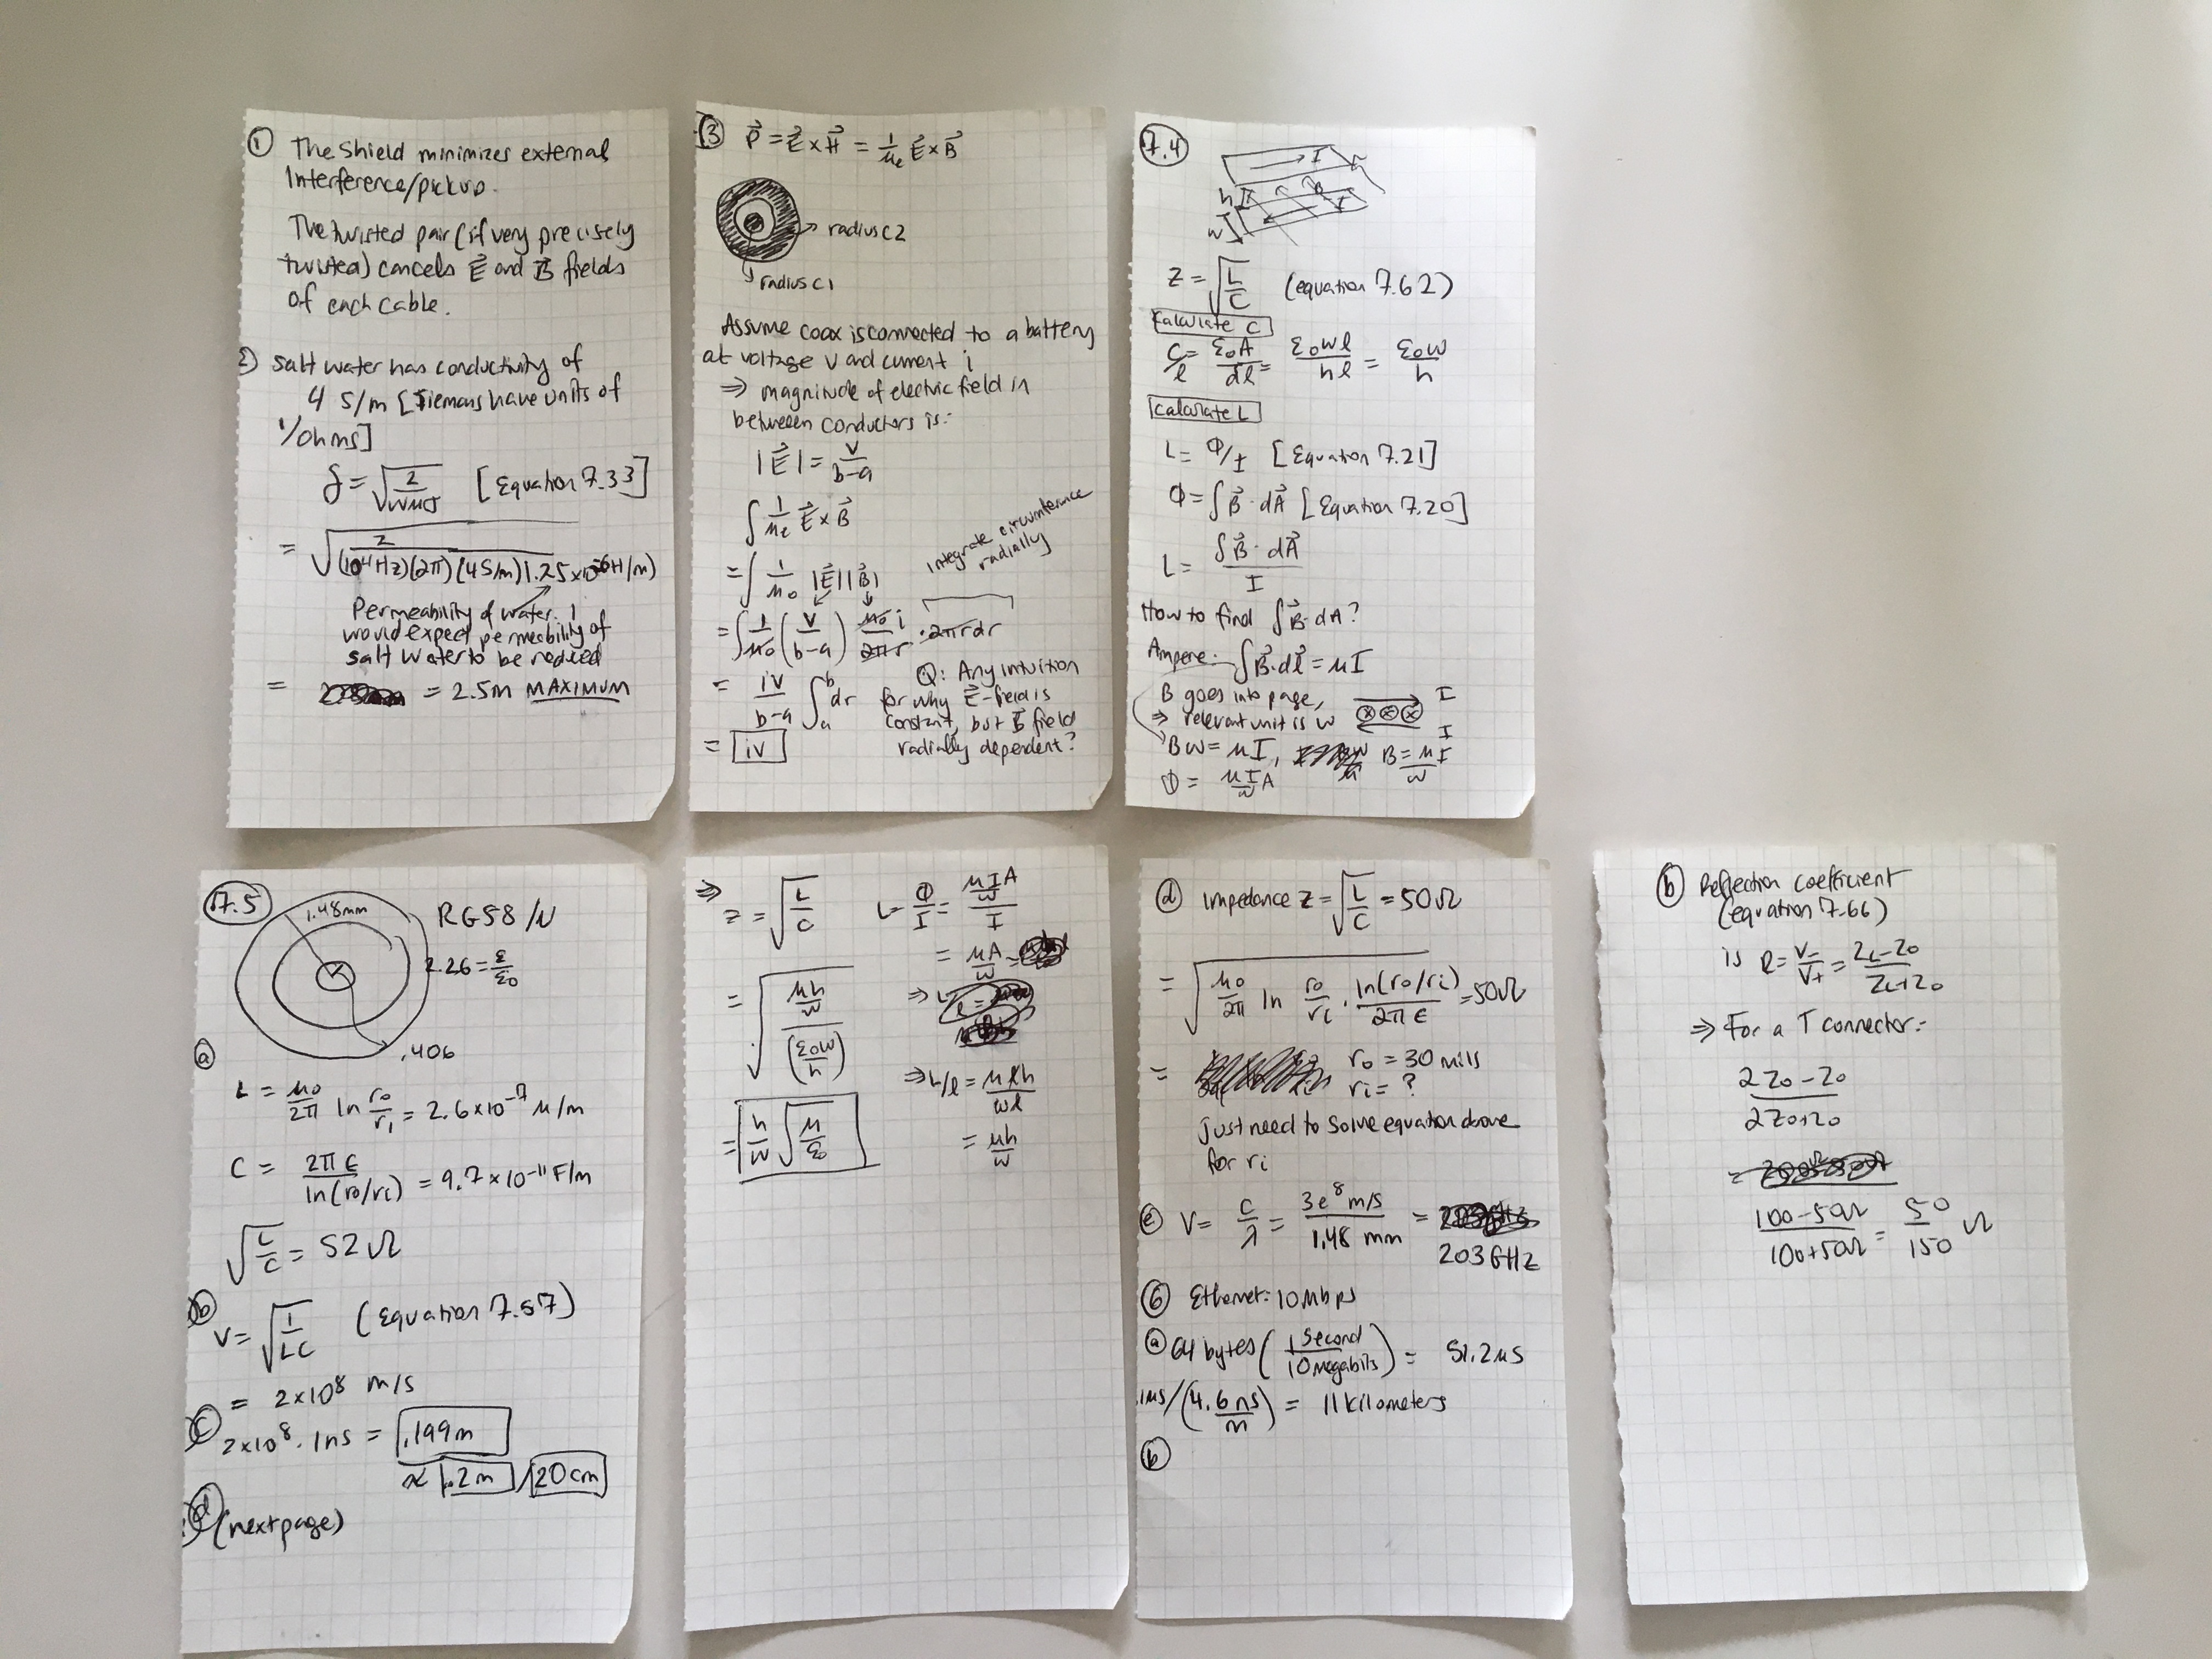 ① The Shield minimizes external
Interference/pickup.
The twisted pair (if very precisely
twisted) cancels E⃗ and B⃗ fields
of each cable.
2) Salt water has conductivity of
4 S/m [Siemans have units of
1/ohms]
δ = √(2/ωμσ) [Equation 7.33]
= √(2/(10⁴Hz)(2π)(4S/m)1.25×10⁻⁶H/m)
Permeability of water. I
would expect permeability of
salt water to be reduced
= = 2.5m MAXIMUM
③ P⃗ = E⃗ × H⃗ = 1/μ E⃗ × B⃗
radius c2
radius c1
Assume coax is connected to a battery
at voltage V and current i
⇒ magnitude of electric field in
between conductors is:
|E⃗| = V/(b-a)
∫ 1/μ E⃗ × B⃗
= ∫ 1/μ₀ |E⃗||B⃗|
integrate circumference
radially
= ∫ 1/μ₀ (V/(b-a)) μ₀i/2πr · 2πrdr
= iV/(b-a) ∫ₐᵇ dr
Q: Any intuition
for why E⃗-field is
constant, but B⃗ field
radially dependent?
= iv
7.4
I
h
w
I
Z = √(L/C) (equation 7.62)
Calculate C
C/l = ε₀A/dl = ε₀wl/hl = ε₀w/h
Calculate L
L = Φ/I [Equation 7.21]
Φ = ∫B⃗·dA⃗ [Equation 7.20]
L = ∫B⃗·dA⃗/I
How to find ∫B⃗·dA?
Ampere: ∫B⃗·dl⃗ = μI
B goes into page, I
⇒ relevant unit is w I
BW = μI, B = μI/w
Φ = μI/w A
7.5
1.48mm
RG58/U
2.26 = ε/ε₀
.406
ⓐ
L = μ₀/2π ln r₀/rᵢ = 2.6×10⁻⁷ H/m
C = 2πε/ln(r₀/rᵢ) = 9.7×10⁻¹¹ F/m
√(L/C) = 52 Ω
ⓑ V = √(1/LC) (Equation 7.57)
= 2×10⁸ m/s
ⓒ 2×10⁸ · 1ns = .199m
≈ .2m / 20cm
ⓓ (next page)
⇒ Z = √(L/C) L = Φ/I = (μI/w A)/I
= μA/w
= √((μh/w)/(ε₀w/h))
⇒ L/l = μlh/wl
= μh/w
= h/w √(μ/ε₀)
ⓓ Impedance Z = √(L/C) = 50Ω
= √(μ₀/2π ln r₀/rᵢ · ln(r₀/rᵢ)/2πε) = 50Ω
= r₀ = 30 mills
rᵢ = ?
Just need to solve equation above
for rᵢ
ⓔ V = C/λ = 3e⁸ m/s / 1.48 mm =
203GHz
⑥ Ethernet: 10 Mbps
ⓐ 64 bytes (1 second/10 megabits) = 51.2 μs
/(4.6 ns/m) = 11 kilometers
ⓑ
ⓑ Reflection coefficient
(equation 7.66)
is R = V₋/V₊ = (Z_L-Z₀)/(Z_L+Z₀)
⇒ For a T connector:
(2Z₀-Z₀)/(2Z₀+Z₀)
=
(100-50Ω)/(100+50Ω) = 50/150 Ω